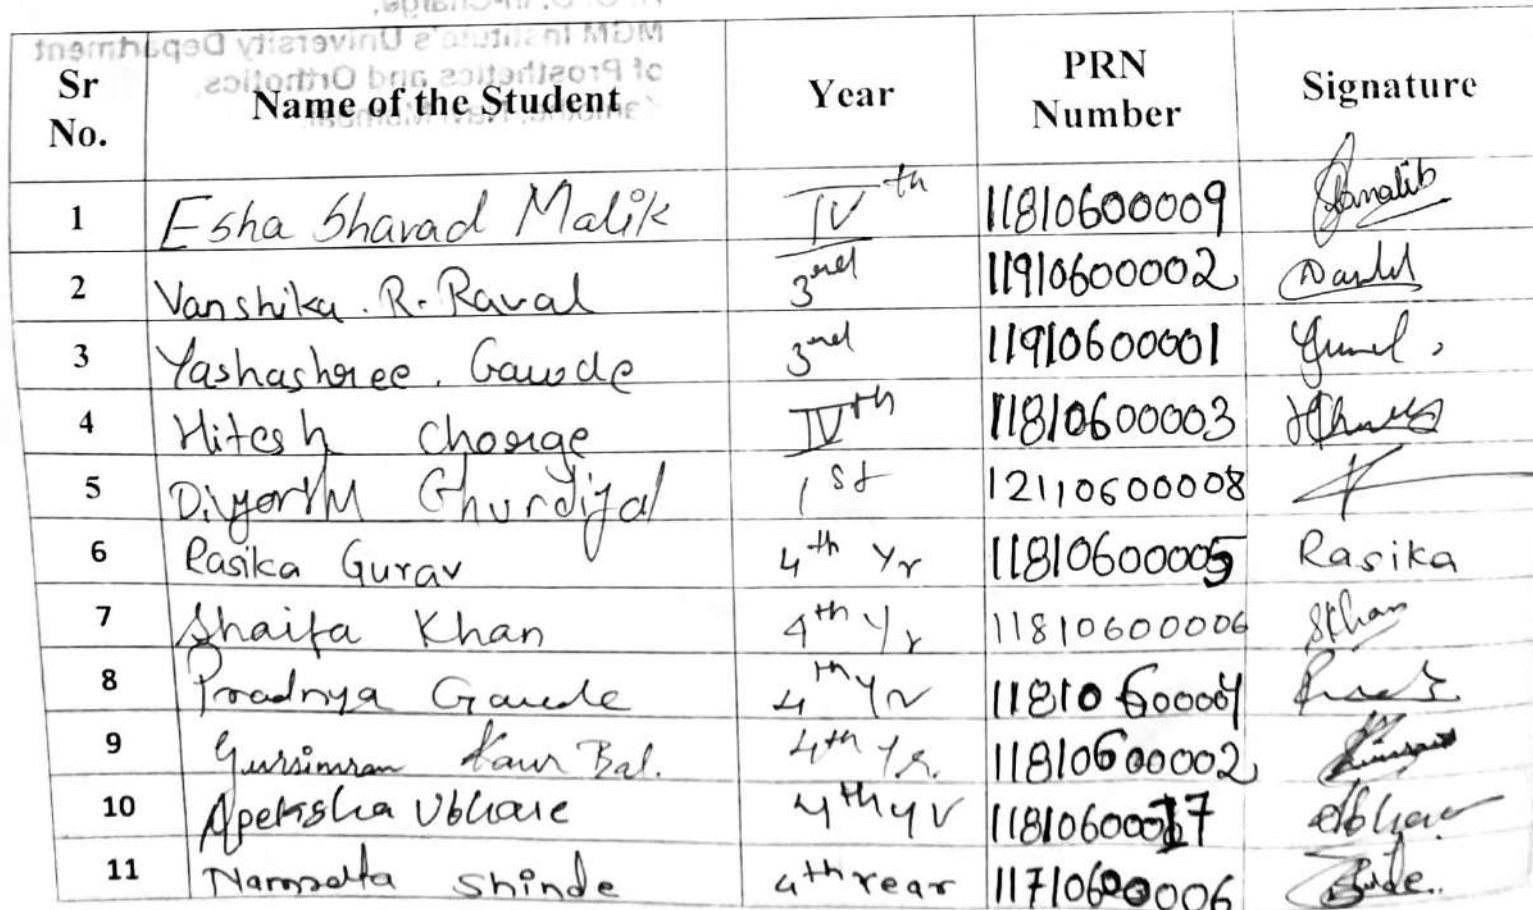 Sr No. Name of the Student Year PRN Number Signature
1 Esha Sharad Malik IVth 11810600009
2 Vanshika. R. Raval 3rd 11910600002
3 Yashashree. Gawde 3rd 11910600001
4 Hitesh Chorge IVth 11810600003
5 Ghurdijal 1st 12110600008
6 Rasika Gurav 4th Yr 11810600005 Rasika
7 Shaifa Khan 4th Yr 11810600006 SKhan
8 Pradnya Gawde 4th Yr 11810600004
9 Gursimran Kaur Bal. 4th Yr. 11810600002
10 Apeksha Ubhare 4th yr 11810600017
11 Namrata Shinde 4th Year 11710600006